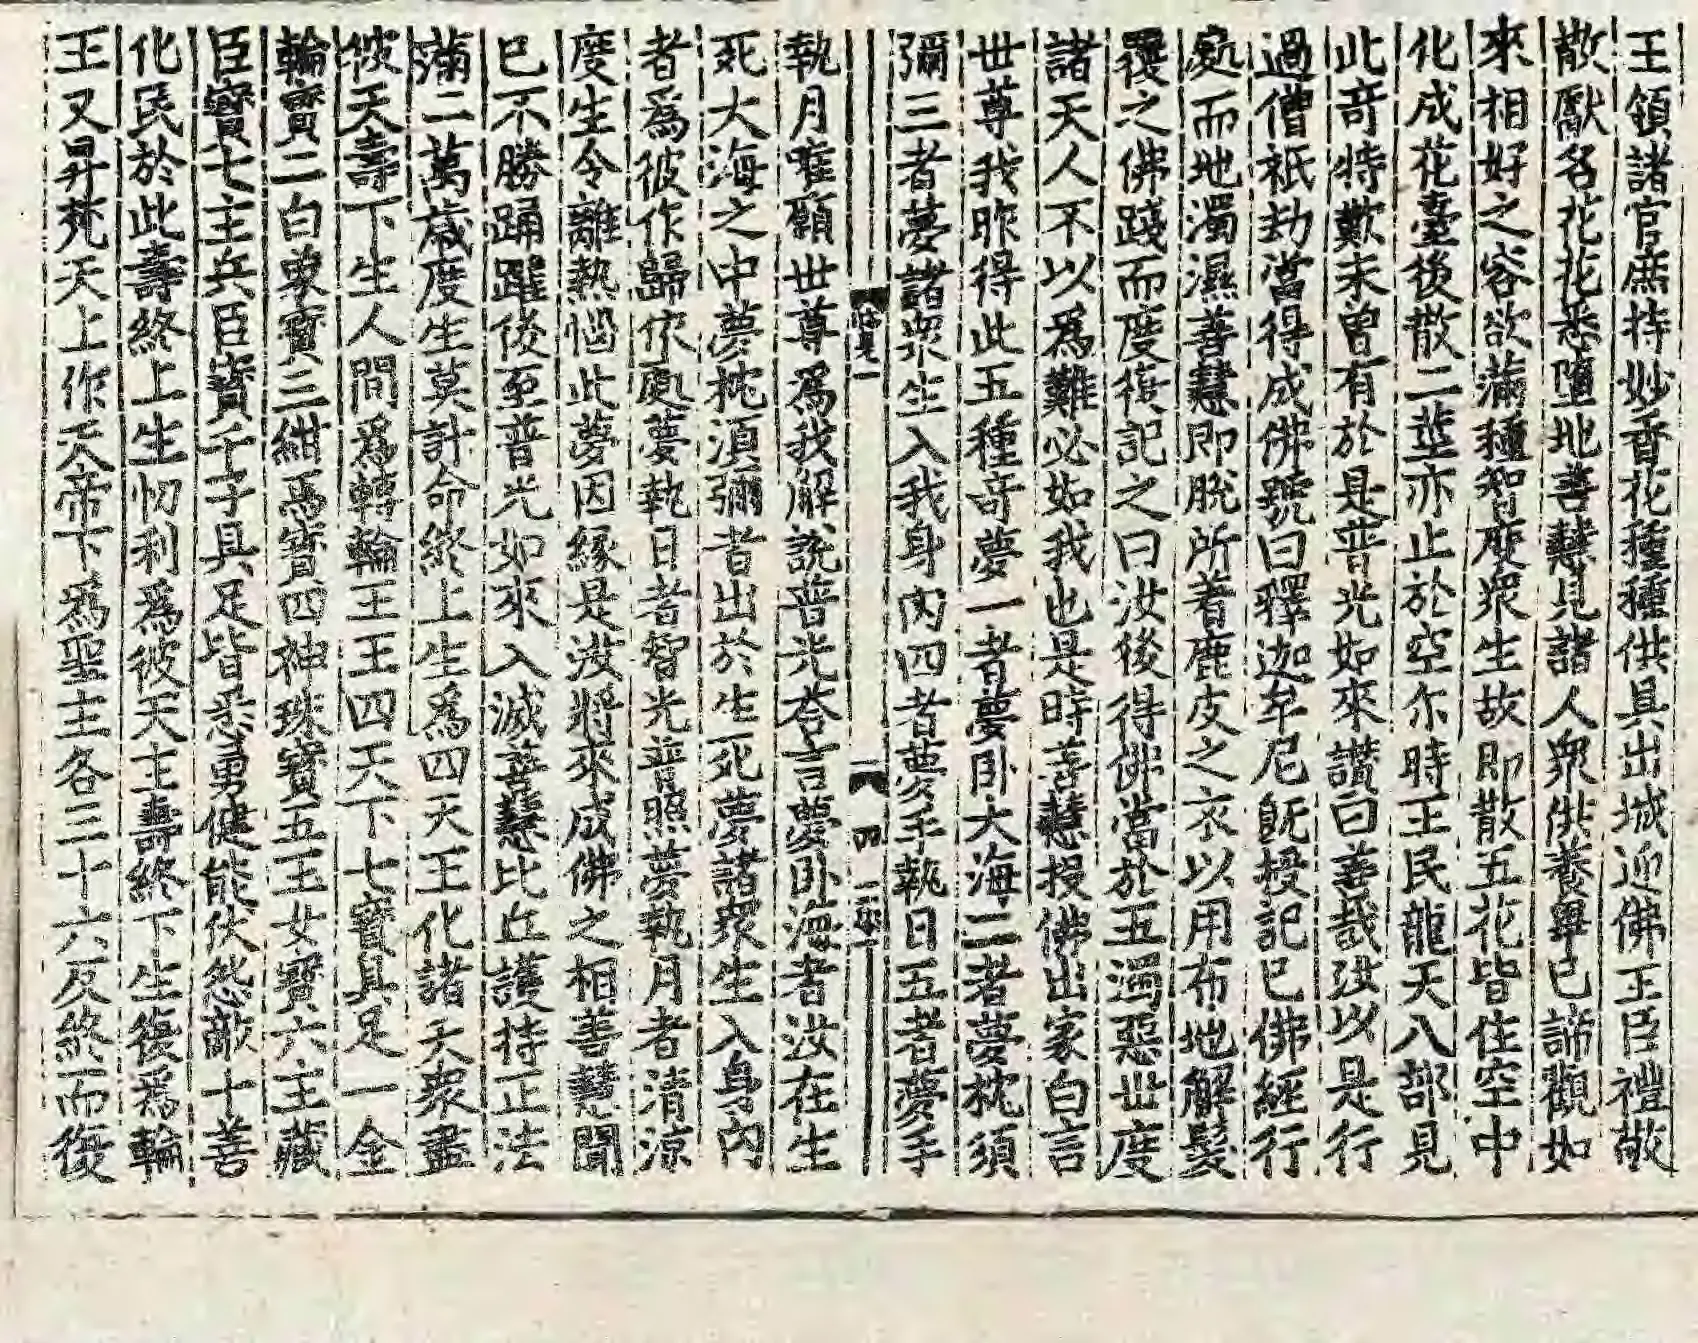 王領諸官庶持妙香花種種供具出城迎佛王臣禮敬
散獻名花花悉墮地善慧見諸人衆供養畢已諦觀如
來相好之容欲滿種智度衆生故即散五花皆住空中
化成花臺後散二莖亦止於空尒時王民龍天八部見
此奇特歎未曾有於是普光如來讚曰善哉汝以是行
過僧祇劫當得成佛號曰釋迦牟尼旣授記已佛經行
處而地濁濕善慧即脫所著鹿皮之衣以用布地解髮
覆之佛踐而度復記之曰汝後得佛當於五濁惡世度
諸天人不以爲難必如我也是時善慧授佛出家白言
世尊我昨得此五種奇夢一者夢卧大海二者夢枕須
彌三者夢諸衆生入我身內四者夢手執日五者夢手
執月唯願世尊爲我解說普光荅言夢卧海者汝在生
死大海之中夢枕須彌者出於生死夢諸衆生入身內
者爲彼作歸依處夢執日者智光普照夢執月者清涼
度生令離熱惱此夢因緣是汝將來成佛之相善慧聞
已不勝踊躍後至普光如來入滅善慧比丘護持正法
滿二萬歲度生莫計命終上生爲四天王化諸天衆盡
彼天壽下生人間爲轉輪王王四天下七寶具足一金
輪寶二白象寶三紺馬寶四神珠寶五玉女寶六主藏
臣寶七主兵臣寶千子具足皆悉勇健能伏怨敵十善
化民於此壽終上生忉利爲彼天主壽終下生後爲輪
王又昇梵天上作天帝下爲聖主各三十六反終而復